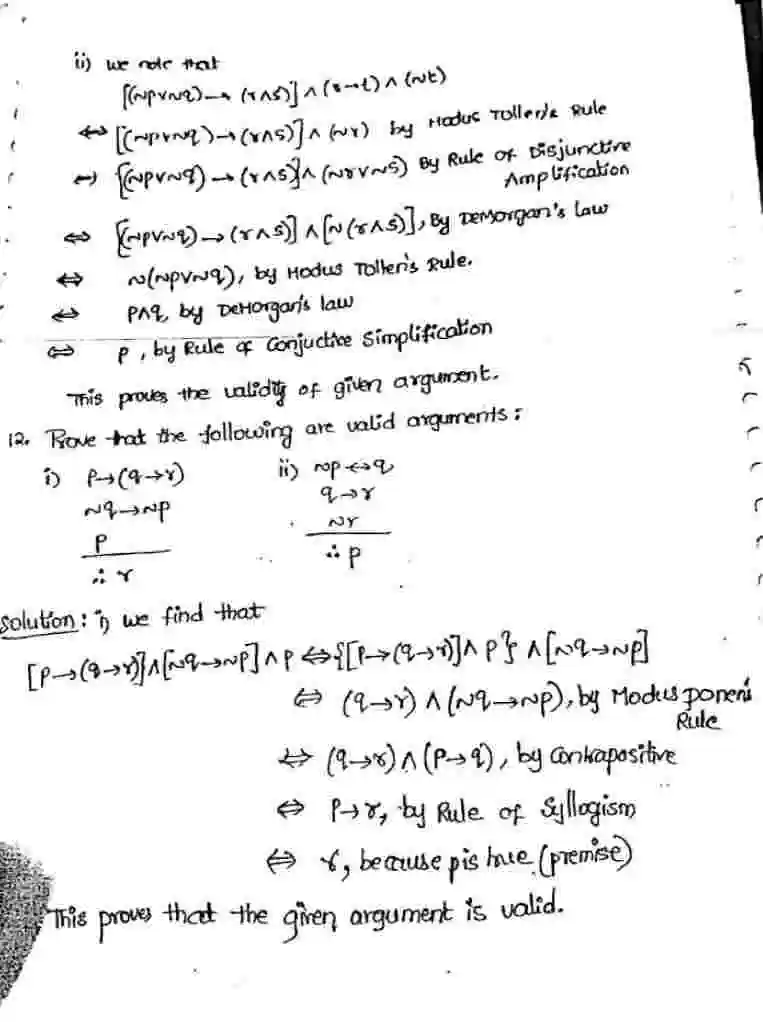 ii) we note that
[(~p∨~q)→ (r∧s)] ∧ (r→t) ∧ (~t)
⇔ [(~p∨~q)→(r∧s)] ∧ (~r) by Modus Tollen's Rule
⇔ [(~p∨~q)→(r∧s)]∧ (~r∨~s) By Rule of Disjunctive
Amplification
⇔ [(~p∨~q)→(r∧s)] ∧[~(r∧s)], By DeMorgan's law
⇔ ~(~p∨~q), by Modus Tollen's Rule.
⇔ P∧q, by DeMorgan's law
⇔ p, by Rule of Conjuctive Simplification
This proves the validity of given argument.
12. Prove that the following are valid arguments:
i) P→(q→r) ii) ~p↔q
~q→~p q→r
P ~r
∴ r ∴ p
Solution: i) we find that
[P→(q→r)]∧[~q→~p]∧p ⇔{[P→(q→r)]∧p} ∧[~q→~p]
⇔ (q→r) ∧ (~q→~p), by Modus ponen's
Rule
⇔ (q→r)∧(P→q), by Contrapositive
⇔ P→r, by Rule of Syllogism
⇔ r, because p is true (premise)
This proves that the given argument is valid.